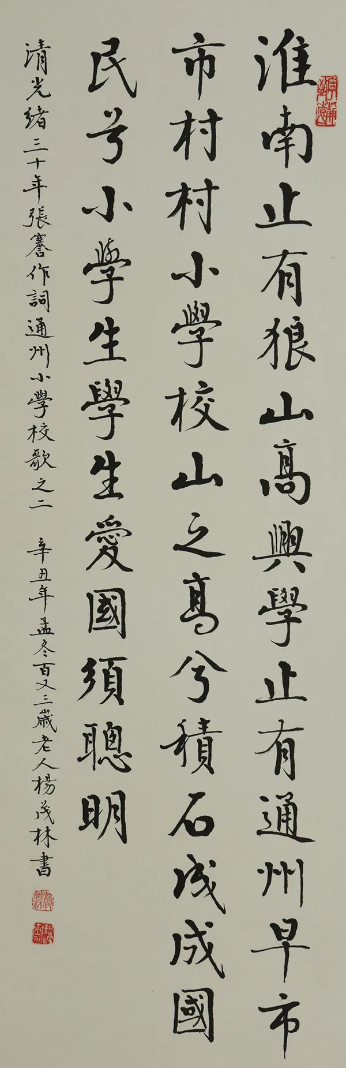 淮南止有狼山高興學止有通州早市
市村村小學校山之高兮積石成成國
民兮小學生學生愛國須聰明
清光緒三十年張謇作詞通州小學校歌之二 辛丑年孟冬百又三歲老人楊茂林書